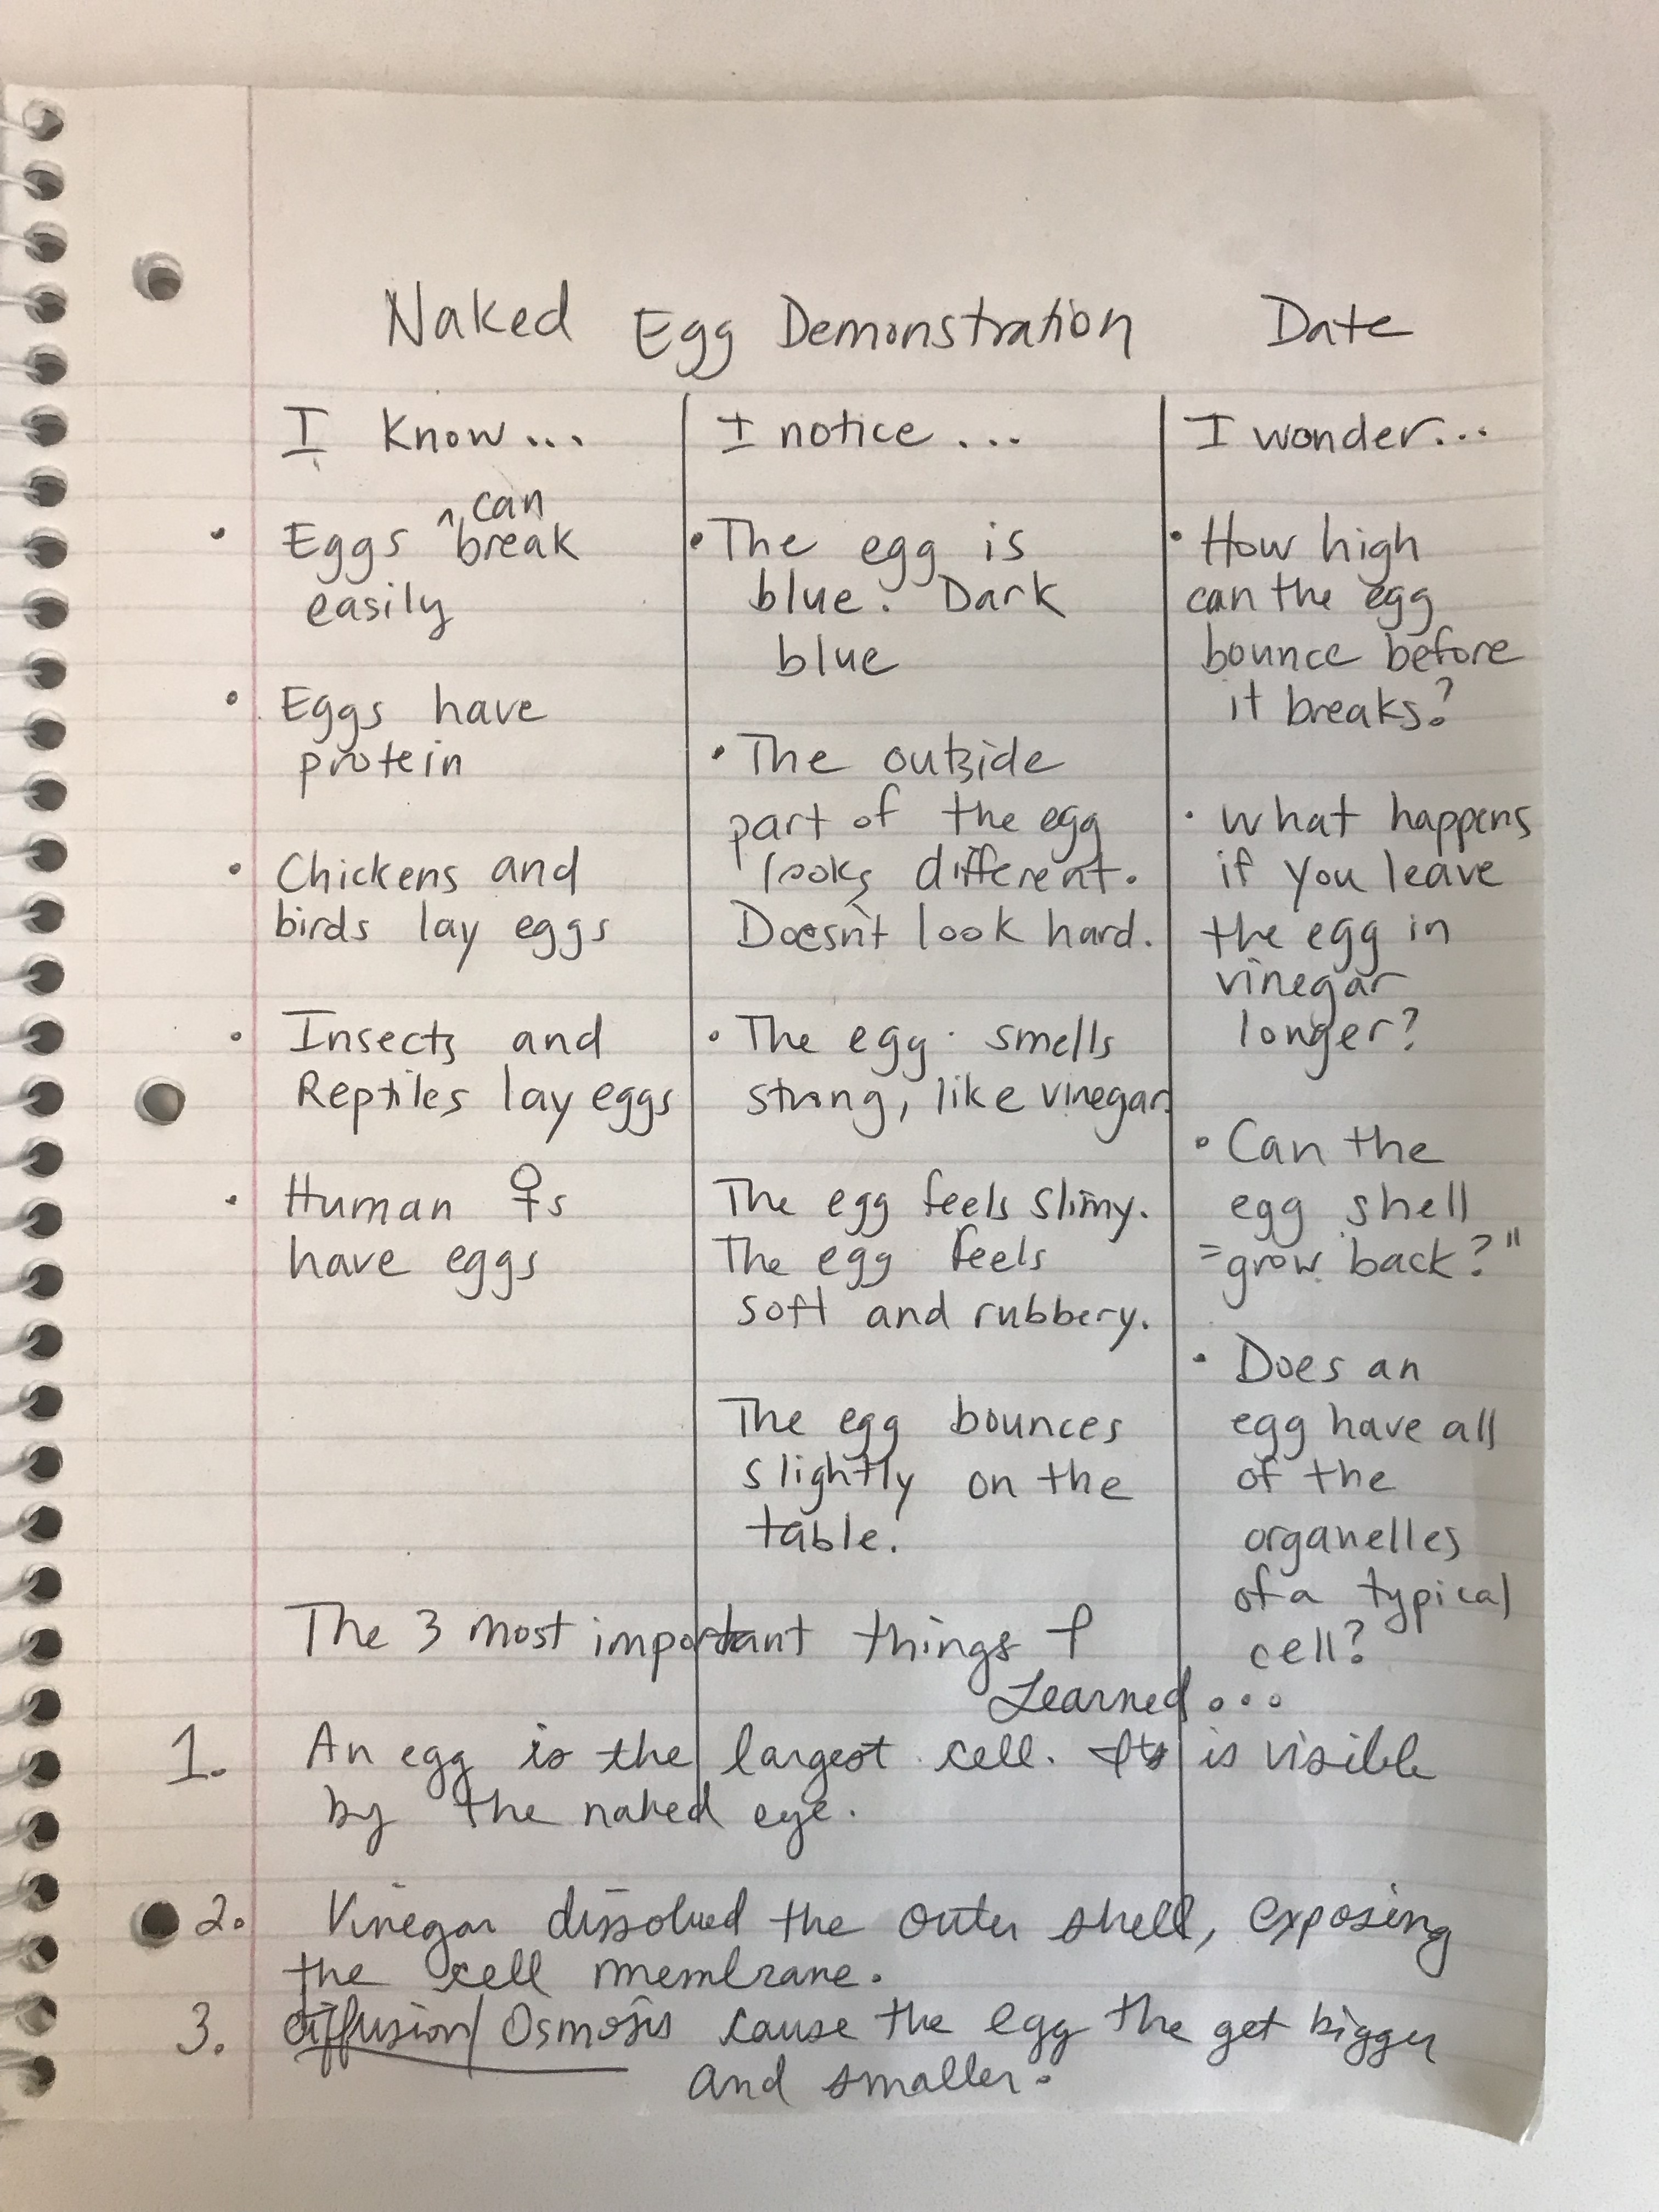 Naked Egg Demonstration Date
I know...
Eggs ^can break
easily
Eggs have
protein
Chickens and
birds lay eggs
Insects and
Reptiles lay eggs
Human ♀s
have eggs
I notice...
• The egg is
blue. Dark
blue
• The outside
part of the egg
looks different.
Doesn't look hard.
• The egg smells
strong, like vinegar.
The egg feels slimy.
The egg feels
soft and rubbery.
The egg bounces
slightly on the
table.
I wonder...
• How high
can the egg
bounce before
it breaks?
• What happens
if you leave
the egg in
vinegar
longer?
• Can the
egg shell
"grow back?"
• Does an
egg have all
of the
organelles
of a typical
cell?
The 3 most important things I
Learned...
1. An egg is the largest cell. It is visible
by the naked eye.
2. Vinegar dissolved the outer shell, exposing
the cell membrane.
3. diffusion/Osmosis cause the egg the get bigger
and smaller.